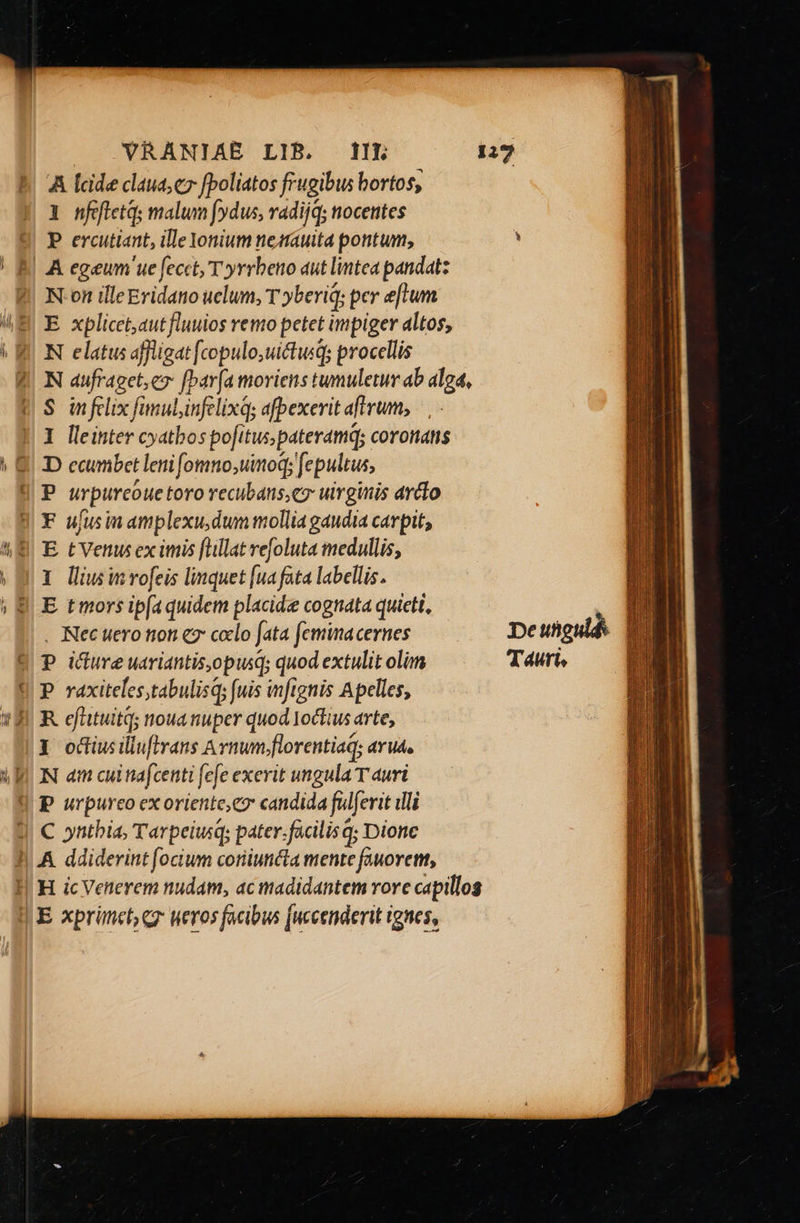 VRANIAE LIB. III. 127
A lcide claua,& ſpoliatos frugibus hortos,
I nfeſtetq; malum ſydus, radijq; nocentes
P ercutiant, ille Ionium ne nauita pontum,
A egeum'ue ſecet, Tyrrheno aut lintea pandat:
N on ille Eridano uelum, Tyberiq; per æſtum
E xplicet,aut fluuios remo petet impiger altos,
N elatus affligat ſcopulo,uictusq; procellis
N aufraget,& ſparſa moriens tumuletur ab alga,
S infelix ſimul,infelixq; aſpexerit aſtrum,
I lle inter cyathos poſitus,pateramq; coronans
D ecumbet leni ſomno,uinoq; ſepultus,
P urpureoue toro recubans,& uirginis arcto
F uſus in amplexu,dum mollia gaudia carpit,
E t Venus ex imis ſtillat reſoluta medullis,
I llius in roſeis linquet ſua fata labellis.
E t mors ipſa quidem placidæ cognata quieti.
. Nec uero non & cœlo ſata ſemina cernes
De ungula Tauri.
P icturæ uariantis,opusq; quod extulit olim
P raxiteles,tabulisq; ſuis inſignis Apelles,
R eſtituitq; noua nuper quod Ioctius arte,
I octius illuſtrans Arnum,florentiaq; arua.
N am cui naſcenti ſeſe exerit ungula Tauri
P urpureo ex oriente,& candida fulſerit illi
C ynthia, Tarpeiusq; pater,facilisq; Dione
A ddiderint ſocium coniuncta mente fauorem,
H ic Venerem nudam, ac madidantem rore capillos
E xprimet,& ueros facibus ſuccenderit ignes,